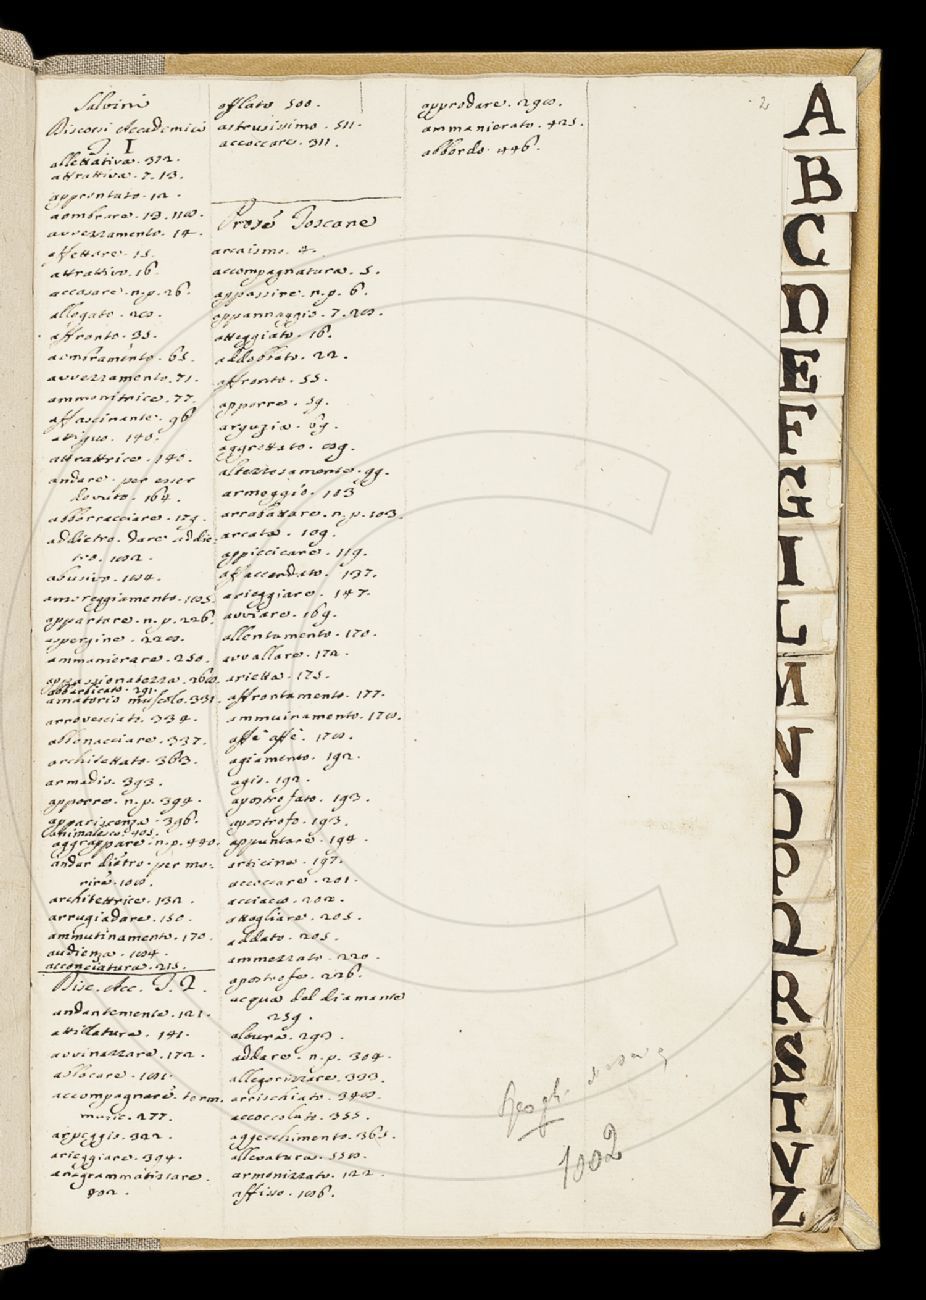 Salvini
Discorsi Accademici
T. I
allettativa. 372.
attrattiva. 7. 13.
approntato. 12.
aombrare. 13. 118.
avvezzamento. 14.
affettare. 15.
attrattivo. 16.
accasare. n.p. 26.
allogato. 28.
affronto. 35.
aombramento. 65.
avvezzamento. 71.
ammonitrice. 77.
affascinante. 96
attiguo. 140.
attrattrice. 140.
andare. per esser
dovuto. 164.
abborracciare. 179.
addietro. dare addie-
tro. 182.
abusivo. 184.
amareggiamento. 185.
appartare. n.p. 226.
aspergine. 228.
ammanierare. 250.
appassionatezza. 268.
abbarbicato. 291.
amatorio muscolo. 331.
arrovesciato. 334.
abbonacciare. 337.
architettato. 363.
armadio. 393.
apporre. n.p. 394.
appariscenza. 396.
animalesco. 405.
aggrappare. n.p. 440.
andar dietro. per mo-
rire. 108.
architettrice. 132.
arrugiadare. 150.
ammutinamento. 170.
audienza. 184.
acconciatura. 215.
Disc. Acc. T. 2.
andantemente. 121.
attillatura. 141.
avvinazzare. 172.
allocare. 181.
accompagnare term.
music. 277.
arpeggio. 322.
arieggiare. 394.
anagrammatizzare.
802.
afflato 500.
astrusissimo. 511.
accoccare. 311.
Prose Toscane
arcaismo. 4.
accompagnatura. 5.
appassire. n.p. 6.
appannaggio. 7. 28.
atteggiato. 16.
addobbato. 22.
affronto. 55.
apporre. 59.
arguzia. 69.
aggrottato. 89.
altezzosamente. 99.
armeggio. 113
arrabattare. n.p. 103.
arcata. 109.
appiccicare. 119.
affaccendato. 137.
arieggiare. 147.
avviare. 169.
allentamento. 170.
avvallare. 172.
arietta. 175.
affrontamento. 177.
ammuinamento. 178.
affè affè. 178.
agiamento. 192.
agio. 192.
apostrofato. 193.
apostrofo. 193.
appuntare. 194.
articino. 197.
accoccare. 201.
acciaco. 202.
attagliare. 205.
addato. 205.
ammezzato. 220.
apostrofe. 226.
acqua del diamante
259.
albura. 293.
addare. n.p. 304.
allegorizzare. 333.
arrischiato. 348.
accoccolato. 355.
aggecchimento. 365.
allevatura. 558.
armonizzato. 122.
affisso. 186.
approdare. 298.
ammanierato. 425.
abbordo. 446.
2
A
B
C
D
E
F
G
I
L
M
N
O
P
Q
R
S
T
V
Z
1002